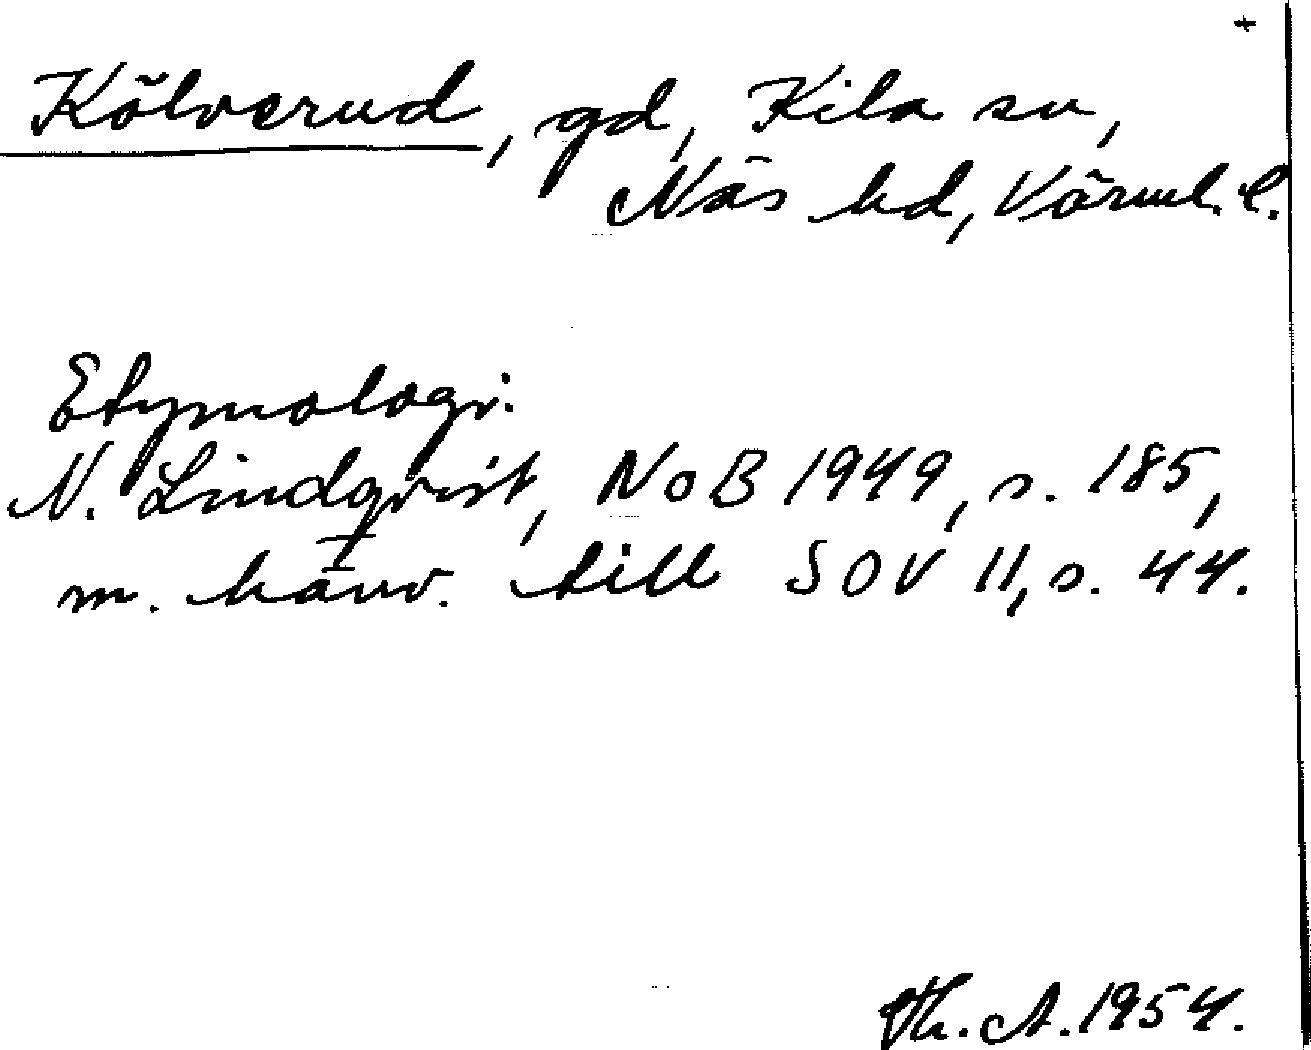 Kölverud, gd, Kila sn,
Näs hd, Värml. l.
Etymologi.
N. Lindqvist, NoB 1949, s. 185,
m. hänv. till SOV 11, s. 44.
Th. A. 1954.